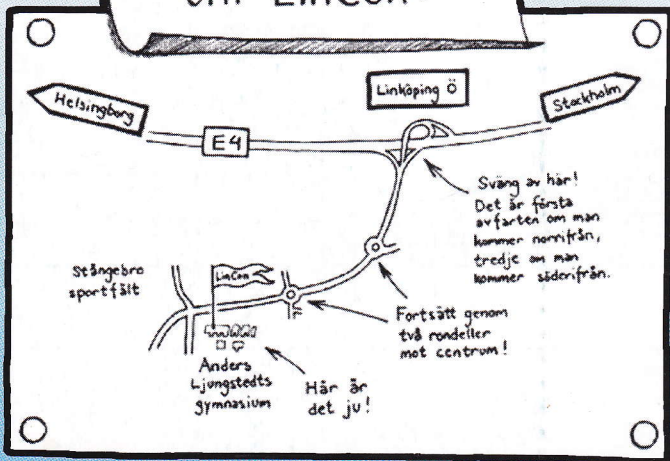 om LinCon
Linköping Ö
Helsingborg
Stockholm
E4
Sväng av här!
Det är första
avfarten om man
kommer norrifrån,
tredje om man
kommer söderifrån.
Stångebro
sportfält
LinCon
Fortsätt genom
två rondeller
mot centrum!
Anders
Ljungstedts
gymnasium
Här är
det ju!